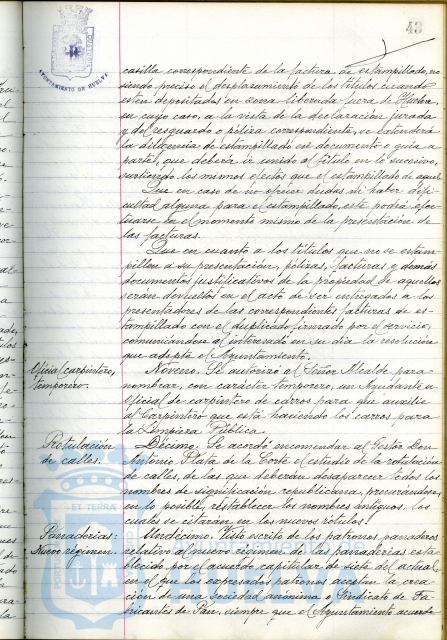 43
AYUNTAMIENTO DE HUELVA
casilla correspondiente de la factura de estampillado, no
siendo preciso el desplazamiento de los títulos cuando
estén depositados en zona liberada fuera de Huelva,
en cuyo caso, a la vista de la declaración jurada
y del resguardo o póliza correspondiente, se extenderá
la diligencia de estampillado en documento o guía a
parte, que deberá ir unido al título en lo sucesivo,
surtiendo los mismos efectos que el estampillado de aquel.
Que en caso de no ofrecer dudas, ni haber difi-
cultad alguna para el estampillado, este podrá efec-
tuarse en el momento mismo de la presentación de
las facturas.
Que en cuanto a los títulos que no se estam-
pillen a su presentación, pólizas, facturas y demás
documentos justificativos de la propiedad de aquellos
serán devueltos en el acto de ser entregados a los
presentadores de las correspondientes facturas de es-
tampillado con el duplicado firmado por el servicio,
comunicándose al interesado en su día la resolución
que adopte el Ayuntamiento.
Oficial carpintero,
temporero.
Noveno. Se autorizó al Señor Alcalde para
nombrar, con carácter temporero, un Ayudante u
oficial de carpintero de carros para que auxilie
al Carpintero que está haciendo los carros para
la Limpieza Pública.
Rotulación
de calles.
Décimo. Se acordó encomendar al Gestor Don
Antonio Plata de la Corte el estudio de la rotulación
de calles, de las que deberán desaparecer todos los
nombres de significación republicana, procurándose,
en lo posible, restablecer los nombres antiguos, los
cuales se citarán en los nuevos rótulos.
Panaderías:
Nuevo régimen.
Undécimo. Visto escrito de los patronos panaderos
relativo al nuevo régimen de las panaderías esta-
blecido por el acuerdo capitular de siete del actual,
en el que los expresados patronos aceptan la crea-
ción de una Sociedad anónima o Sindicato de Fa-
bricantes de Pan, siempre que el Ayuntamiento acuerde